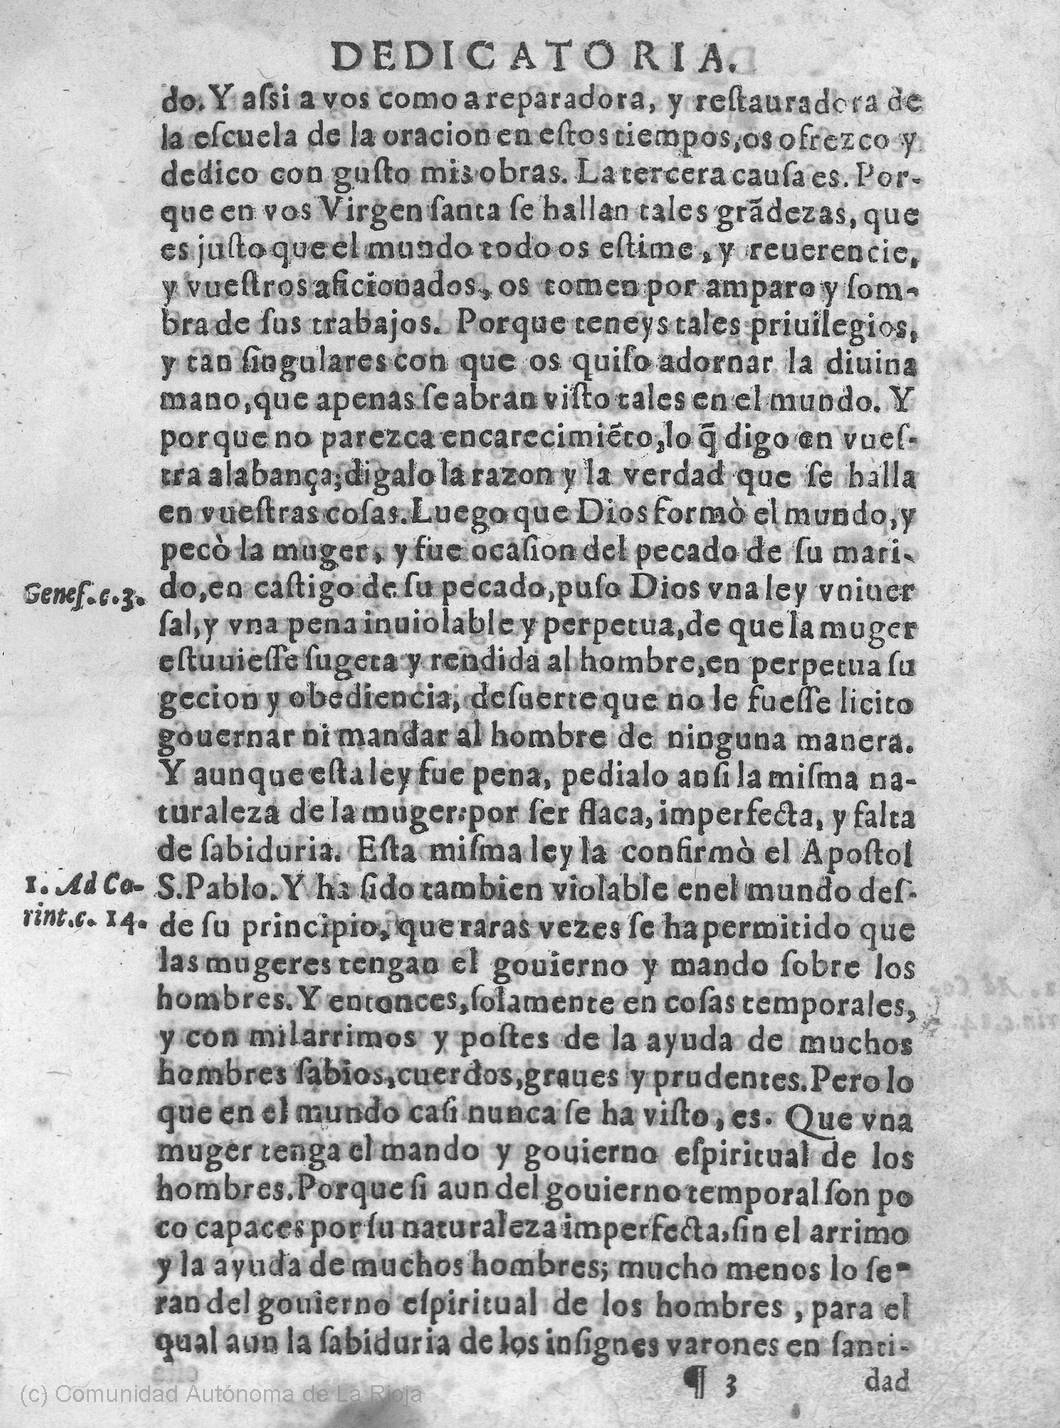 DEDICATORIA.
do. Y aſsi a vos como a reparadora, y reſtauradora de
la eſcuela de la oracion en eſtos tiempos, os ofrezco y
dedico con guſto mis obras. La tercera cauſa es. Por-
que en vos Virgen ſanta ſe hallan tales grãdezas, que
es juſto que el mundo todo os eſtime, y reuerencie,
y vueſtros aficionados, os tomen por amparo y ſom-
bra de ſus trabajos. Porque teneys tales priuilegios,
y tan ſingulares con que os quiſo adornar la diuina
mano, que apenas ſe abran viſto tales en el mundo. Y
porque no parezca encarecimiẽto, lo q̃ digo en vueſ-
tra alabança; digalo la razon y la verdad que ſe halla
en vueſtras coſas. Luego que Dios formò el mundo, y
pecò la muger, y fue ocaſion del pecado de ſu mari-
Geneſ. c. 3. do, en caſtigo de ſu pecado, puſo Dios vna ley vniuer
ſal, y vna pena inuiolable y perpetua, de que la muger
eſtuuieſſe ſugeta y rendida al hombre, en perpetua ſu
gecion y obediencia, deſuerte que no le fueſſe licito
gouernar ni mandar al hombre de ninguna manera.
Y aunque eſta ley fue pena, pedialo anſi la miſma na-
turaleza de la muger: por ſer flaca, imperfecta, y falta
de ſabiduria. Eſta miſma ley la confirmò el Apoſtol
1. Ad Co- S. Pablo. Y ha ſido tambien violable enel mundo deſ-
rint. c. 14. de ſu principio, que raras vezes ſe ha permitido que
las mugeres tengan el gouierno y mando ſobre los
hombres. Y entonces, ſolamente en coſas temporales,
y con mil arrimos y poſtes de la ayuda de muchos
hombres ſabios, cuerdos, graues y prudentes. Pero lo
que en el mundo caſi nunca ſe ha viſto, es. Que vna
muger tenga el mando y gouierno eſpiritual de los
hombres. Porque ſi aun del gouierno temporal ſon po
co capaces por ſu naturaleza imperfecta, ſin el arrimo
y la ayuda de muchos hombres; mucho menos lo ſe-
ran del gouierno eſpiritual de los hombres, para el
qual aun la ſabiduria de los inſignes varones en ſanti-
¶ 3 dad
(c) Comunidad Autónoma de La Rioja